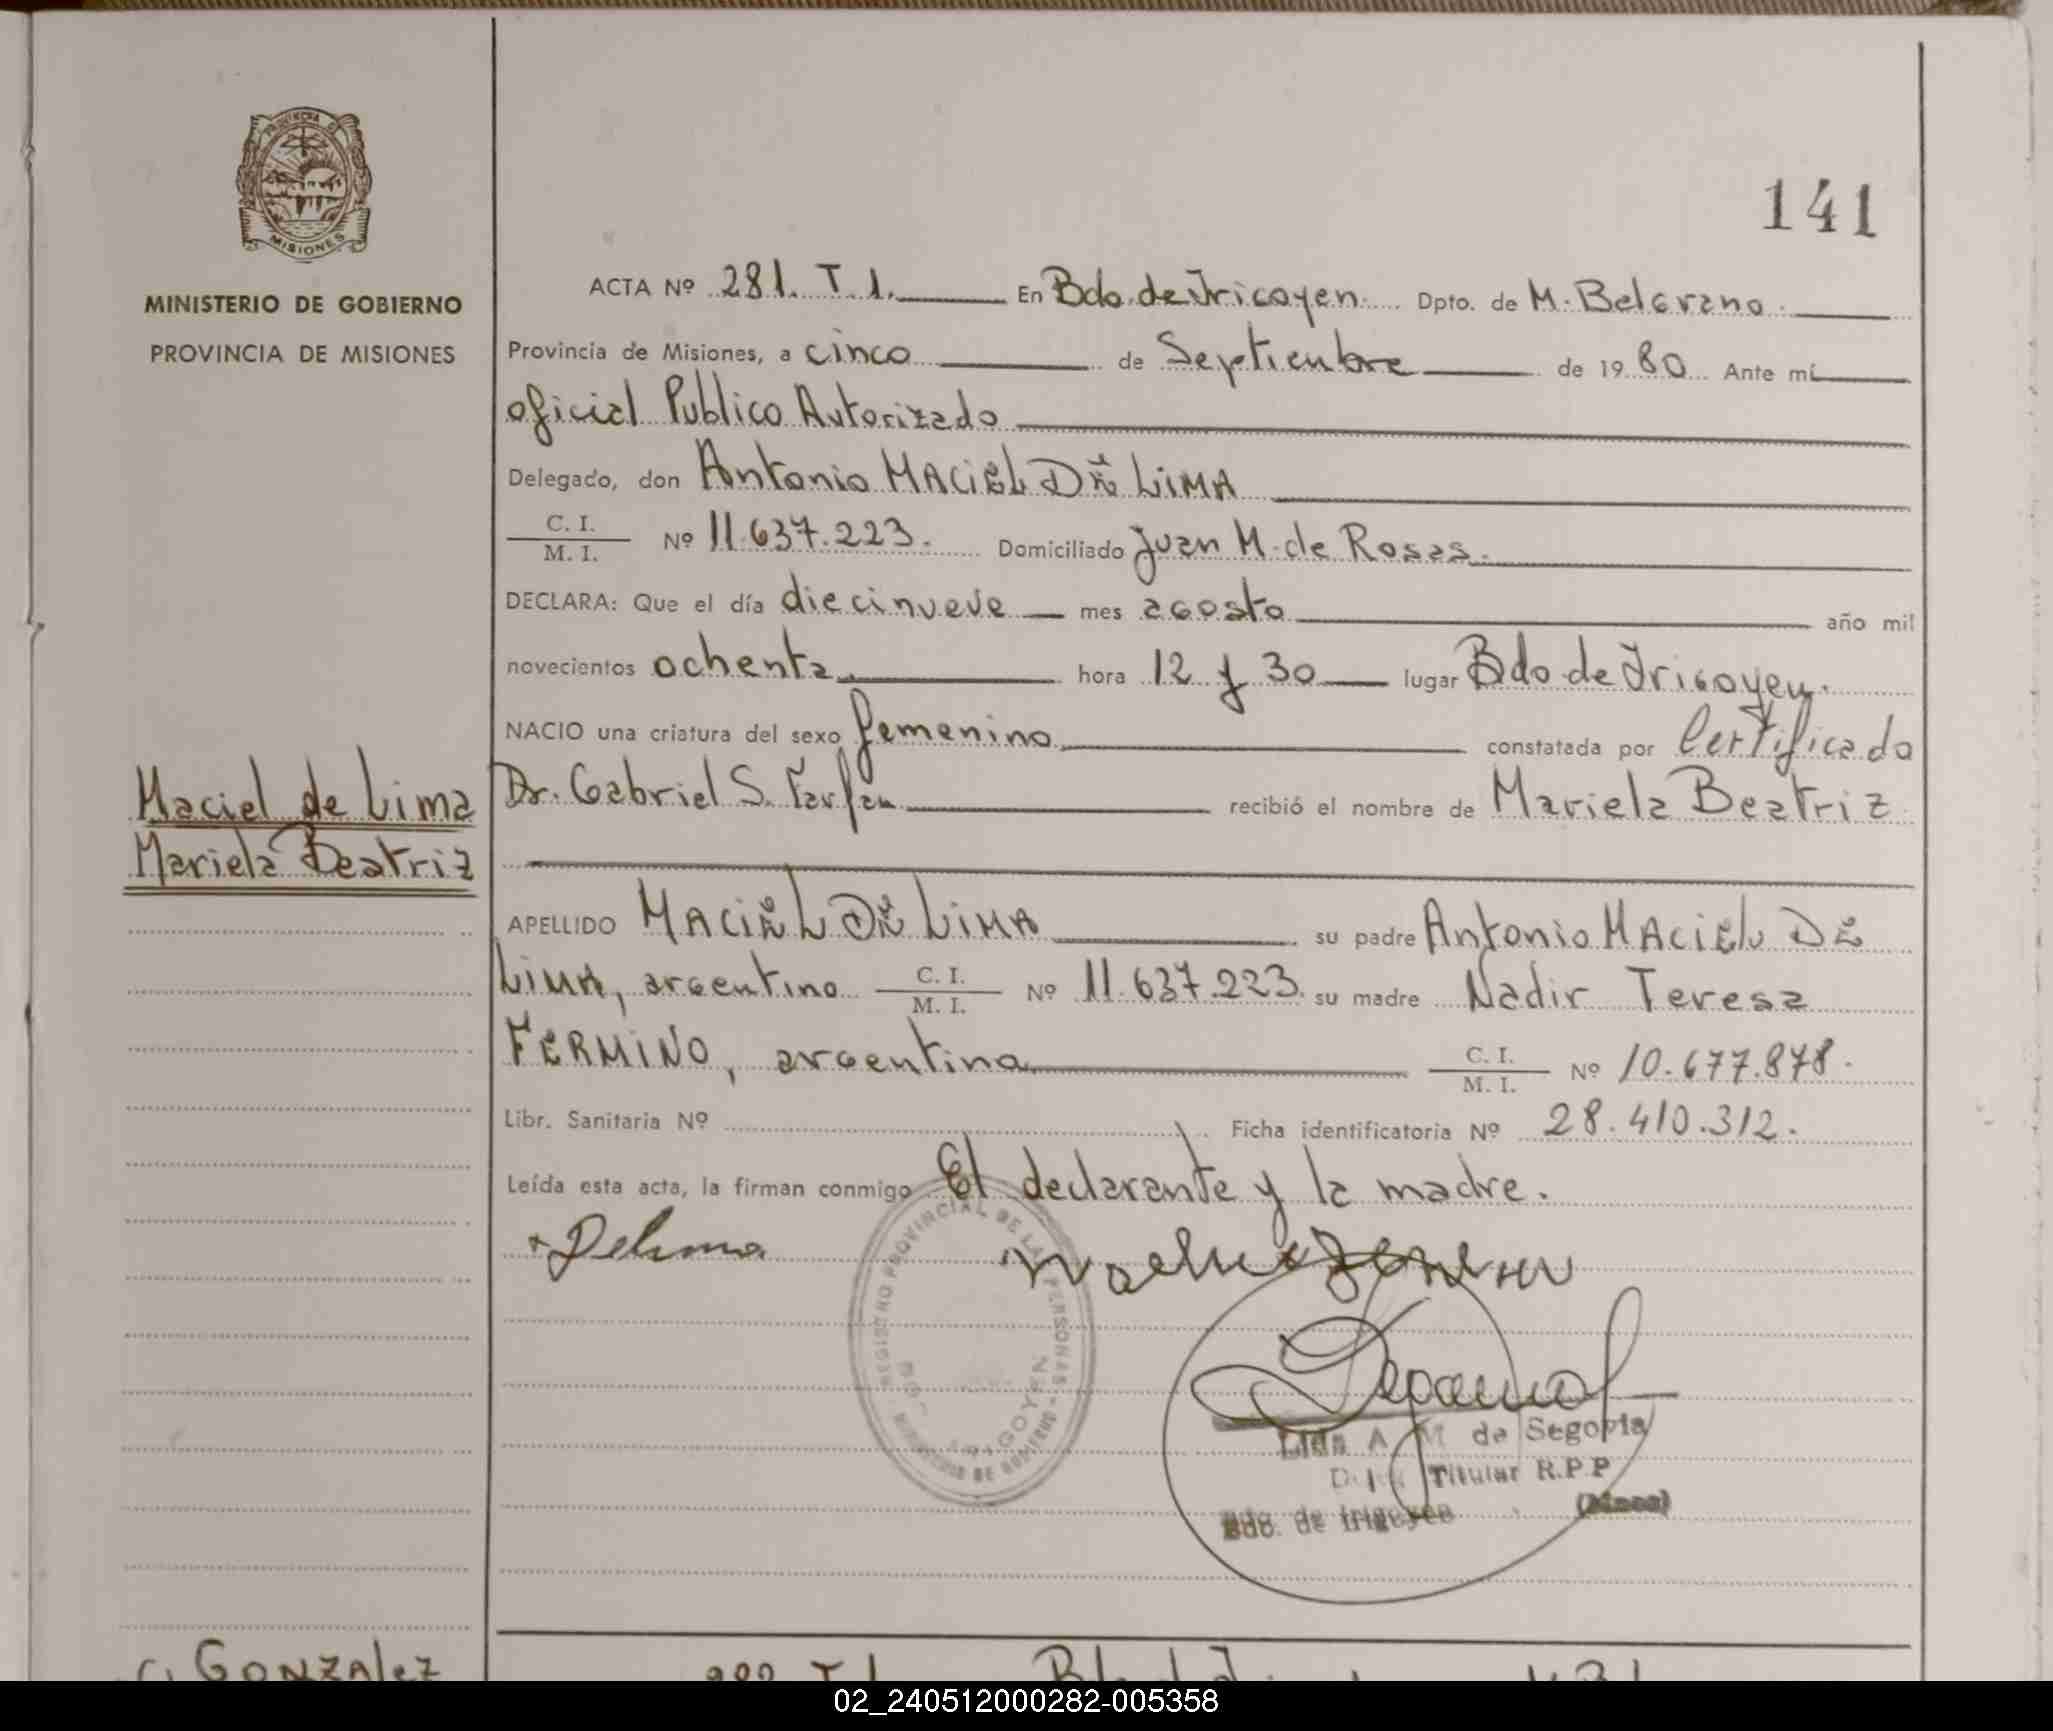 PROVINCIA D
MISIONES
MINISTERIO DE GOBIERNO
PROVINCIA DE MISIONES
141
ACTA Nº 281. T. 1. En Bdo. de Iricoyen Dpto. de M. Belgrano.
Provincia de Misiones, a cinco de Septiembre de 1980 Ante mí
oficial Publico Autorizado
Delegado, don Antonio MACIEL DE LIMA
C. I.
M. I. Nº 11.637.223. Domiciliado Juan M. de Rosas.
DECLARA: Que el día diecinueve mes agosto año mil
novecientos ochenta hora 12 y 30 lugar Bdo de Irigoyen.
NACIO una criatura del sexo femenino constatada por Certificado
Dr. Gabriel S. Farfan recibió el nombre de Mariela Beatriz
Maciel de Lima
Mariela Beatriz
APELLIDO MACIEL DE LIMA su padre Antonio MACIEL DE
LIMA, argentino C. I.
M. I. Nº 11.637.223. su madre Nadir Teresa
FERMINO, argentina C. I.
M. I. Nº 10.677.878.
Libr. Sanitaria Nº Ficha identificatoria Nº 28.410.312.
Leída esta acta, la firman conmigo El declarante y la madre.
Delima
REGISTRO PROVINCIAL DE LAS PERSONAS - MINISTERIO DE GOBIERNO -
IRIGOYEN
A. M. de Segovia
Titular R.P.P
Bdo. de Irigoyen (Mnes)
GONZALEZ
02_240512000282-005358